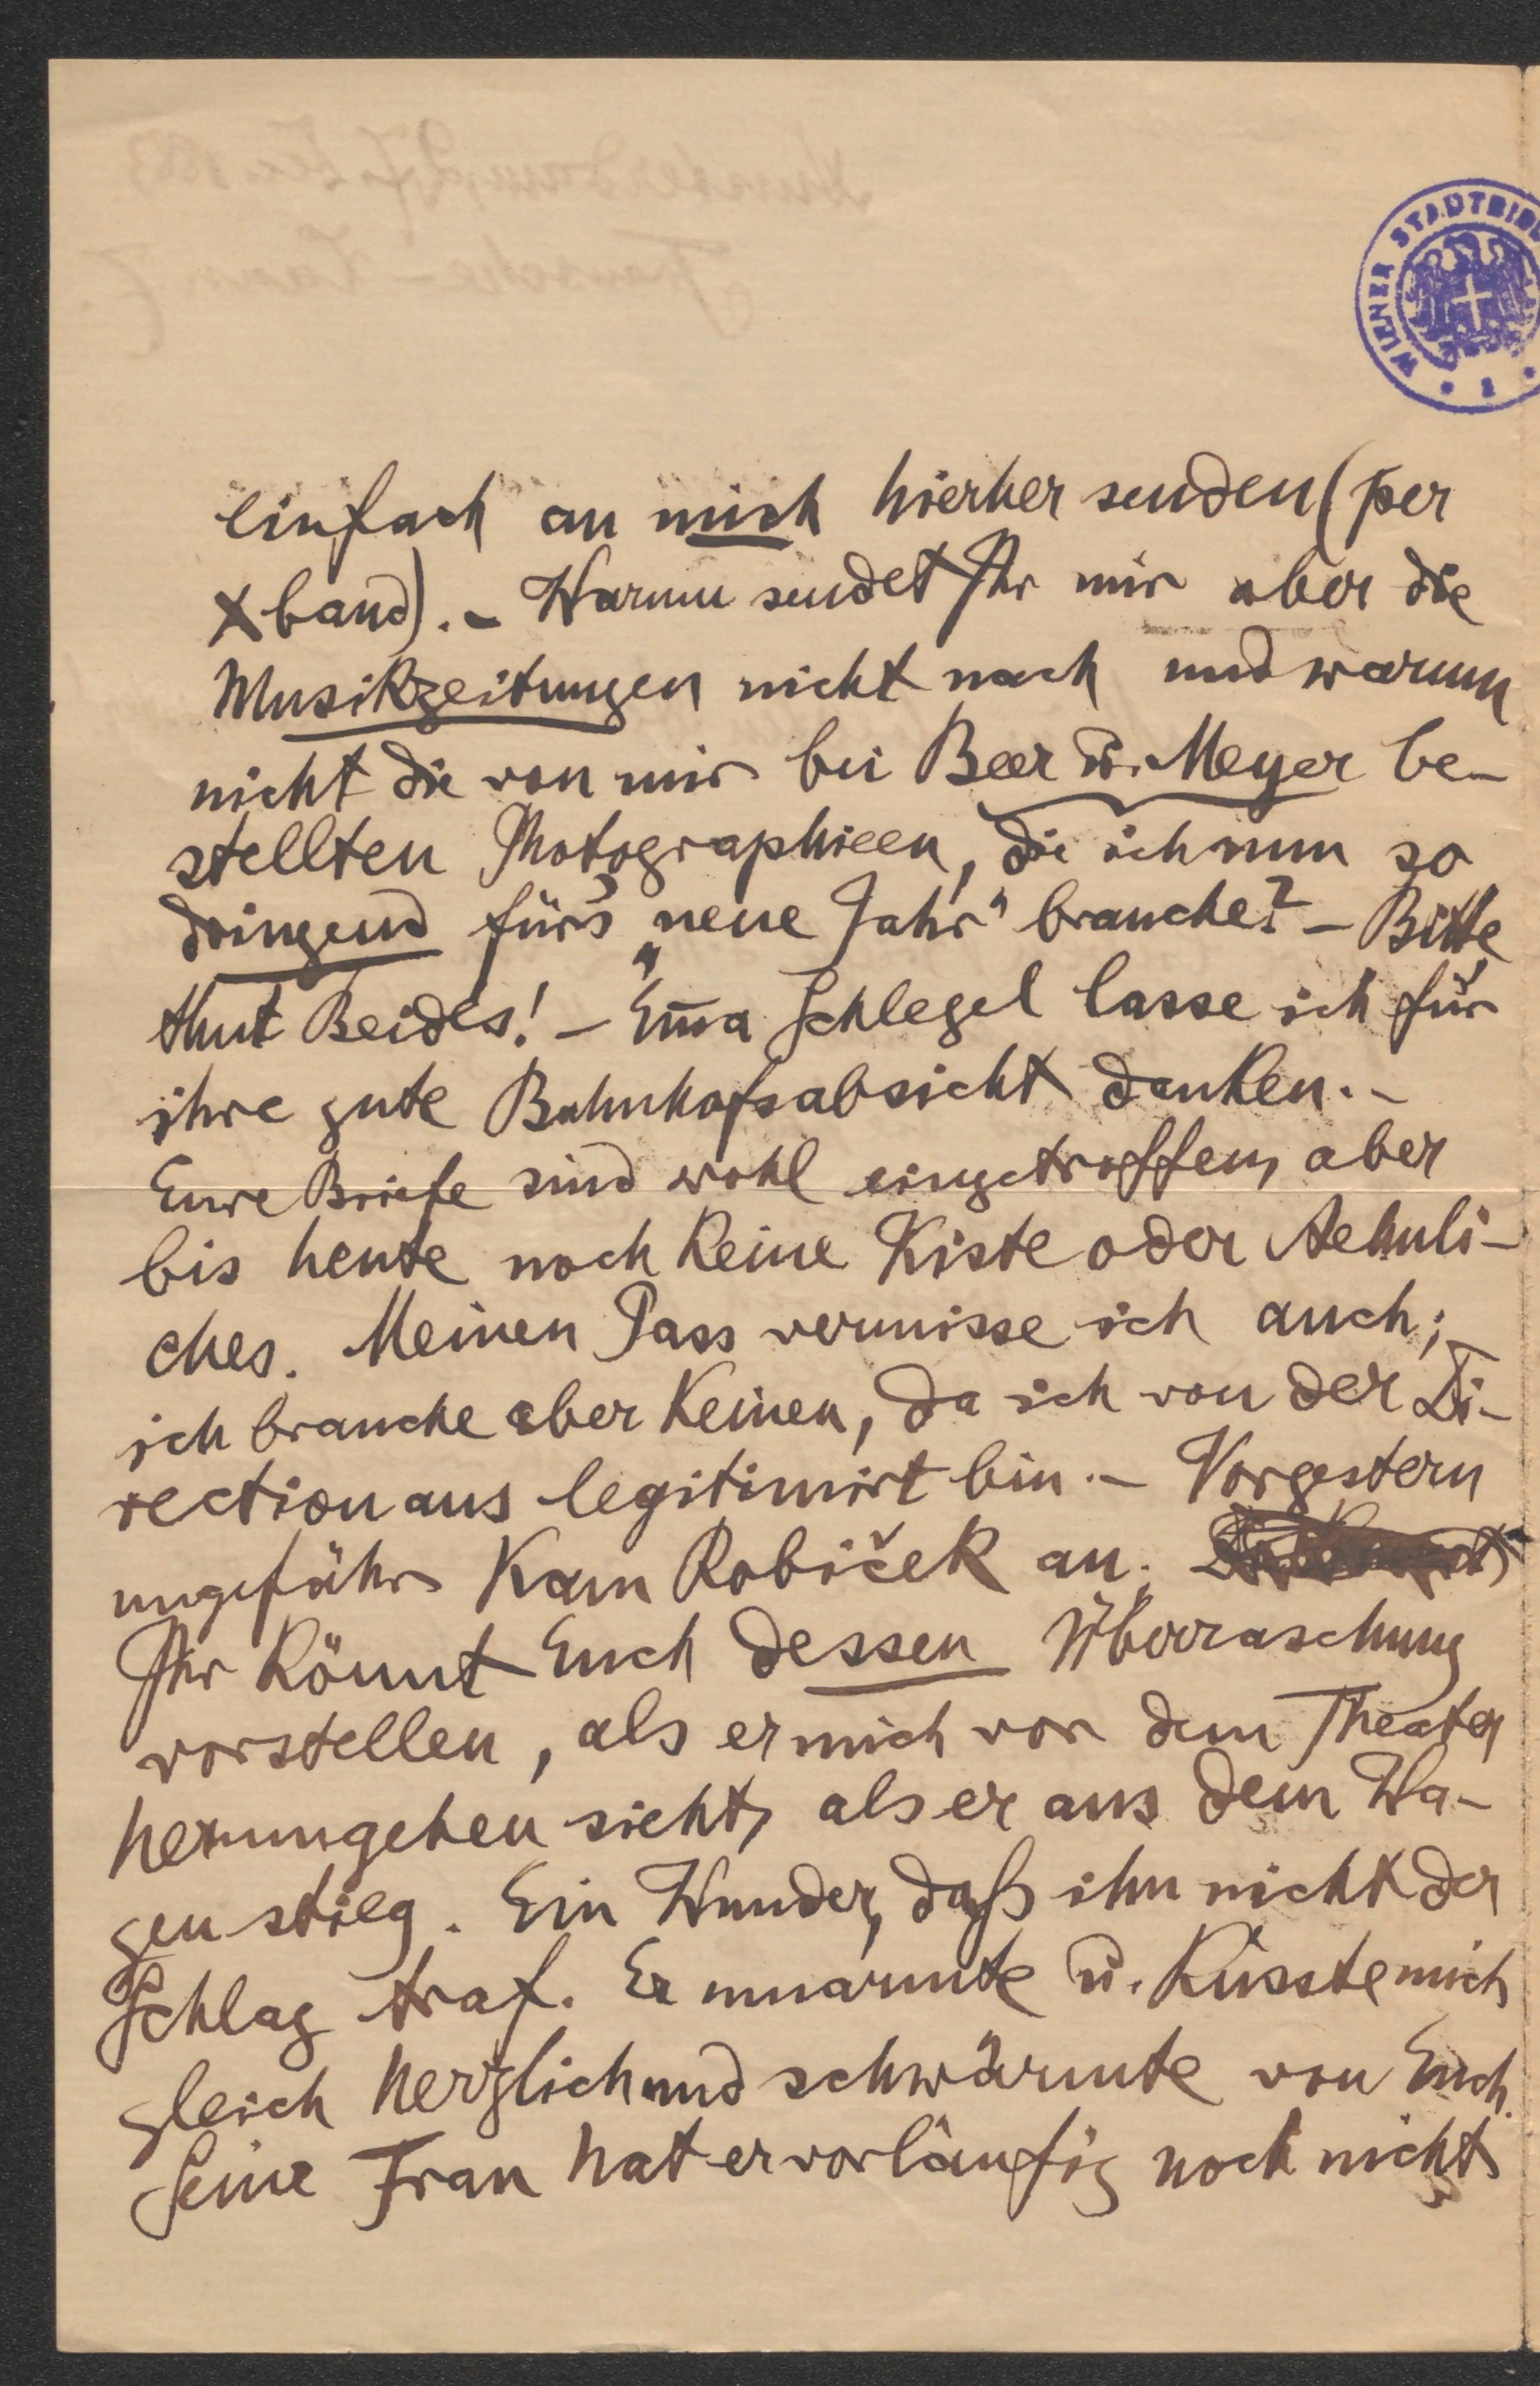 WIENER STADTBIB
1
einfach an mich hierher senden (per
Xband). – Warum sendet Ihr mir aber die
Musikzeitungen nicht nach und warum
nicht die von mir bei Beer u. Meyer be-
stellten Photographieen, die ich nun so
dringend für's „neue Jahr" brauche? – Bitte
thut Beides! – Em̄a Schlegel lasse ich für
ihre gute Bahnhofsabsicht danken. –
Eure Briefe sind wohl eingetroffen, aber
bis heute noch keine Kiste oder Aehnli-
ches. Meinen Pass vermisse ich auch;
ich brauche aber keinen, da ich von der Di-
rection aus legitimirt bin. – Vorgestern
ungefähr kam Robiček an.
Ihr könnt Euch dessen Überraschung
vorstellen, als er mich vor dem Theater
herumgehen sieht, als er aus dem Wa-
gen stieg. Ein Wunder, daß ihn nicht der
Schlag traf. Er umarmte u. küsste mich
gleich herzlich und schwärmte von Euch.
Seine Frau hat er vorläufig noch nicht